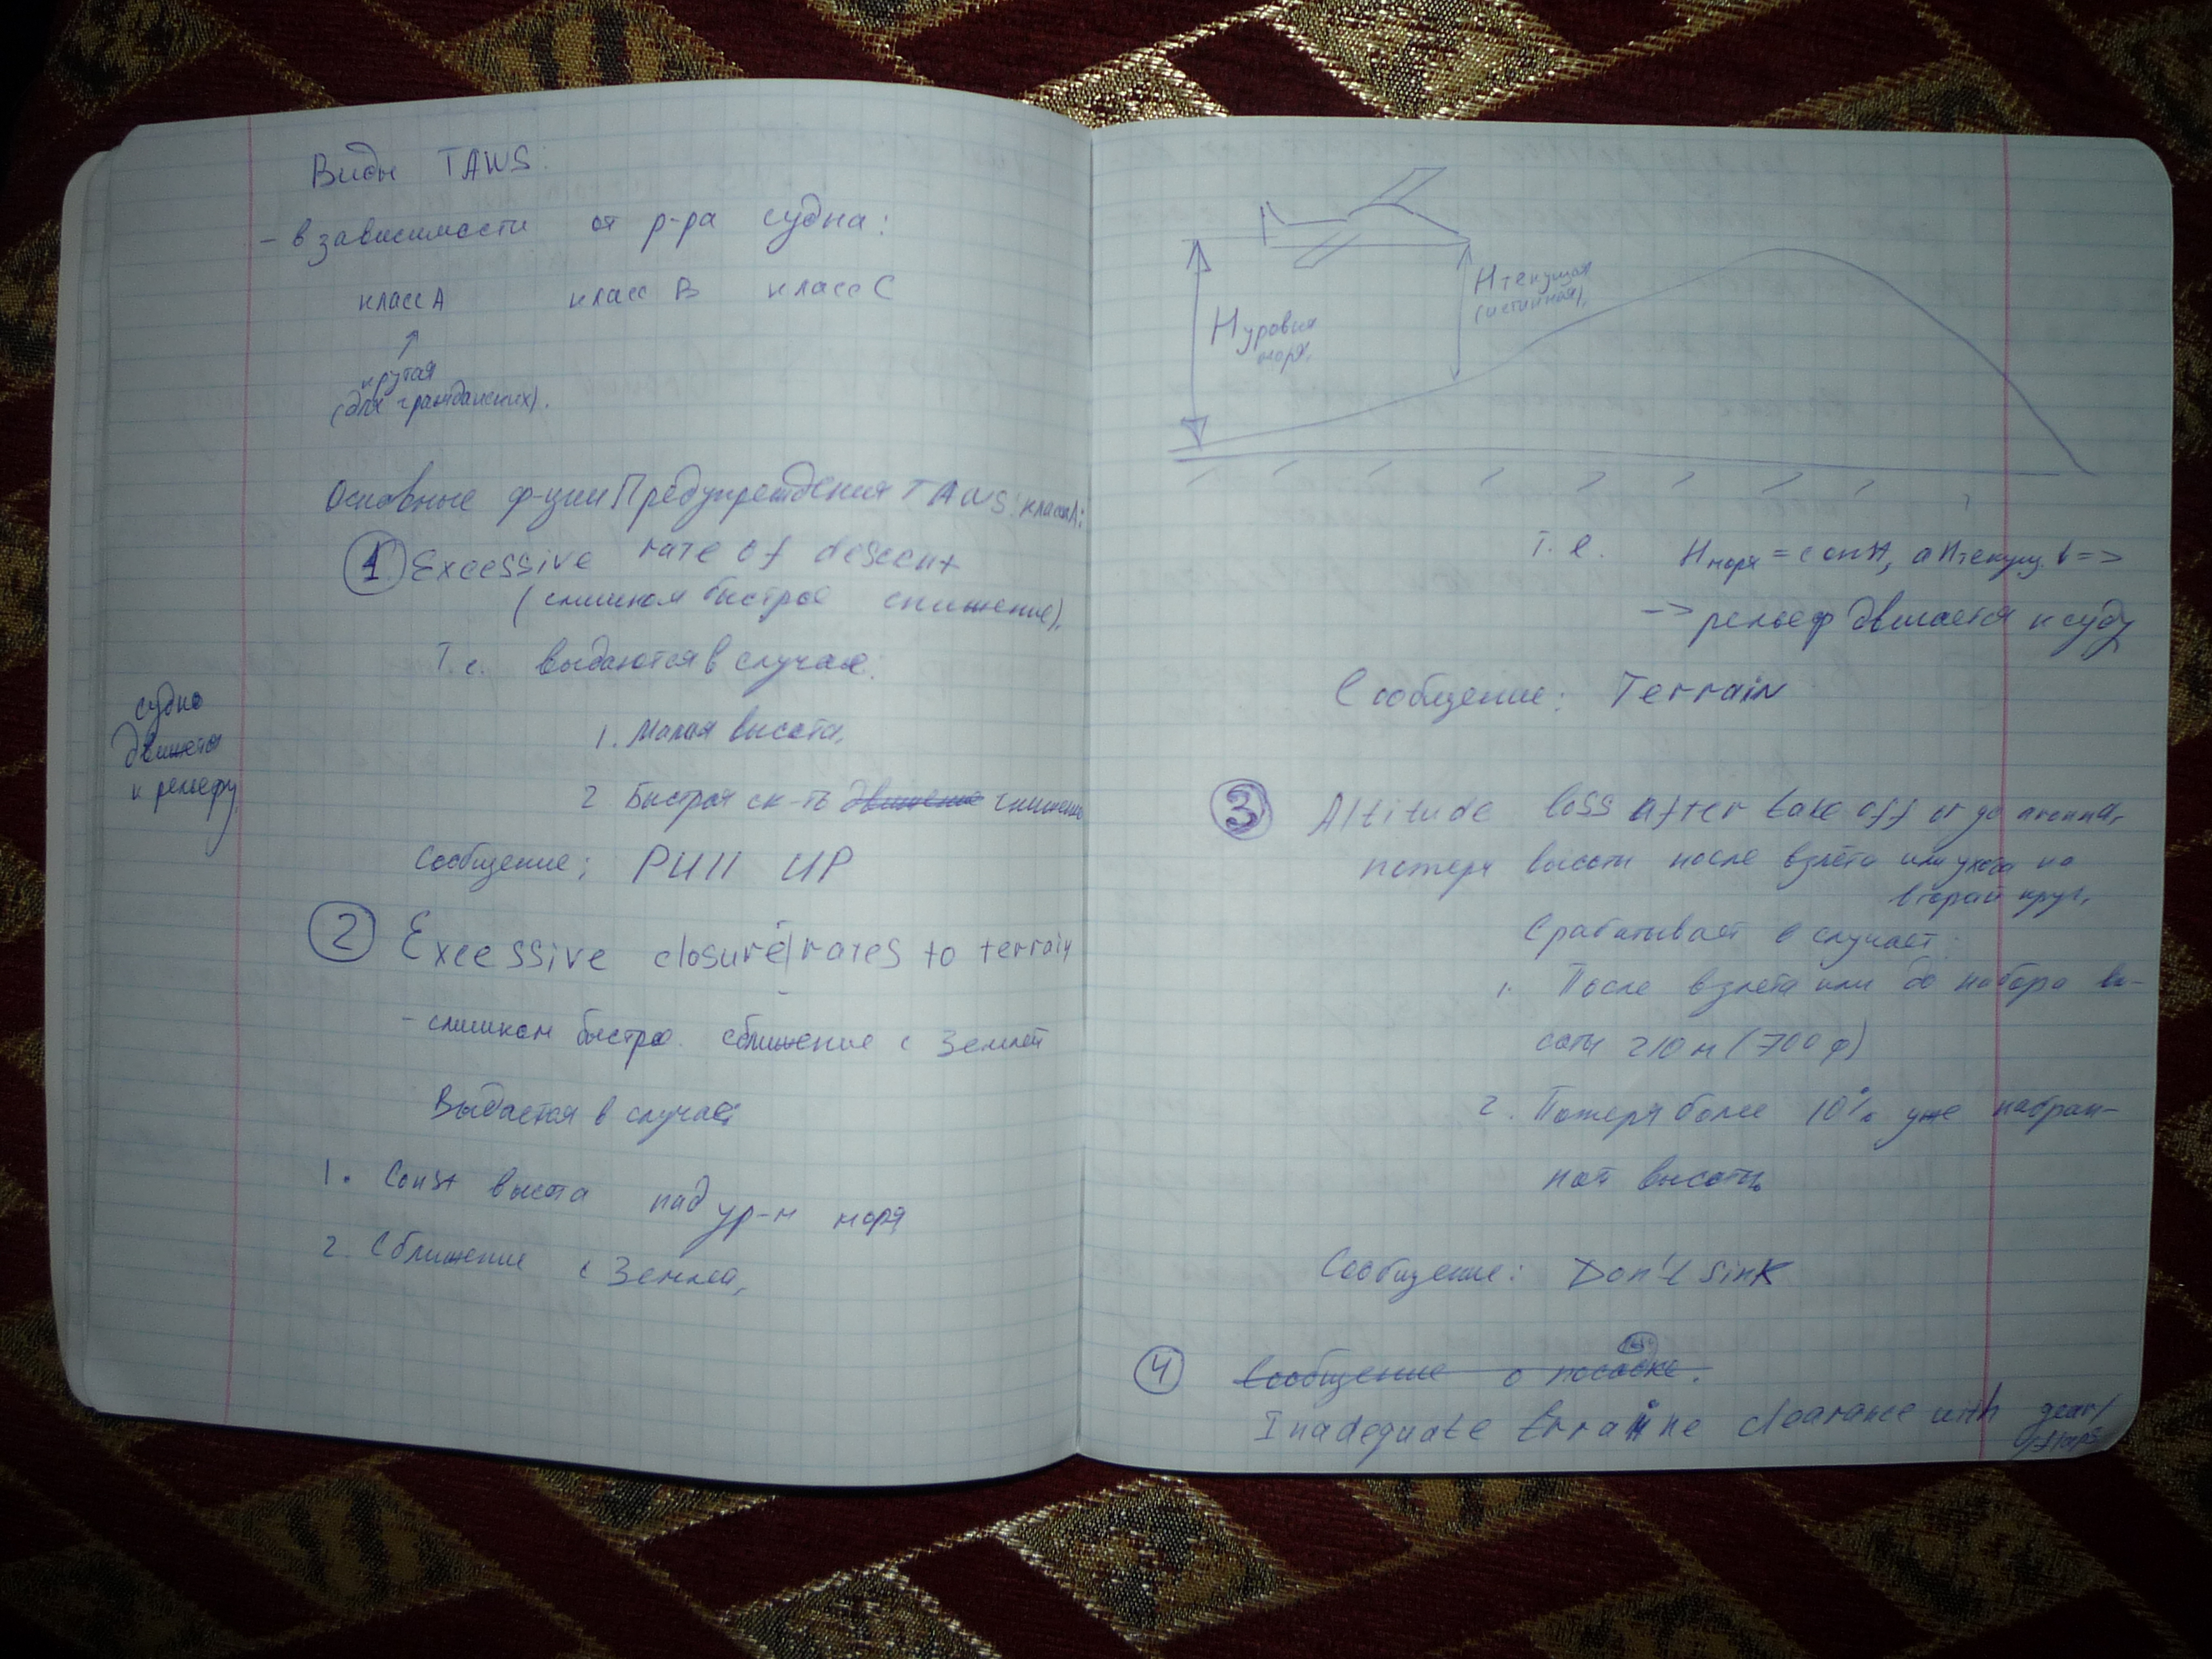 Виды TAWS:
- в зависимости от р-ра судна:
класс А класс В класс С
крутая
(для гражданских).
Основные ф-ции Предупреждения TAWS класса А:
1 Excessive rate of descent
(слишком быстрое снижение).
Т.е. выдаются в случае:
1. Малая высота.
2 Быстрая ск-ть движение снижения
судно
движется
к рельефу
Сообщение: PUll UP
2 Excessive closure rates to terrain
- слишком быстрое сближение с Землёй
Выдаётся в случае
1. Const высота над ур-м моря
2. Сближение с Землёй,
H уровня
моря.
H текущая
(истинная).
Т.е. H моря = const, а H текущ. ↓ =>
-> рельеф движется к судну
Сообщение: Terrain
3 Altitude loss after take off or go around,
потеря высоты после взлёта или ухода на
второй круг.
Срабатывает в случает:
1. После взлёта или до набора вы-
соты 210 м (700 ф)
2. Потеря более 10% уже набран-
ной высоты
Сообщение: Don't Sink
4 Сообщение о посадке.
Inadequate terraine clearance with gear/
flaps